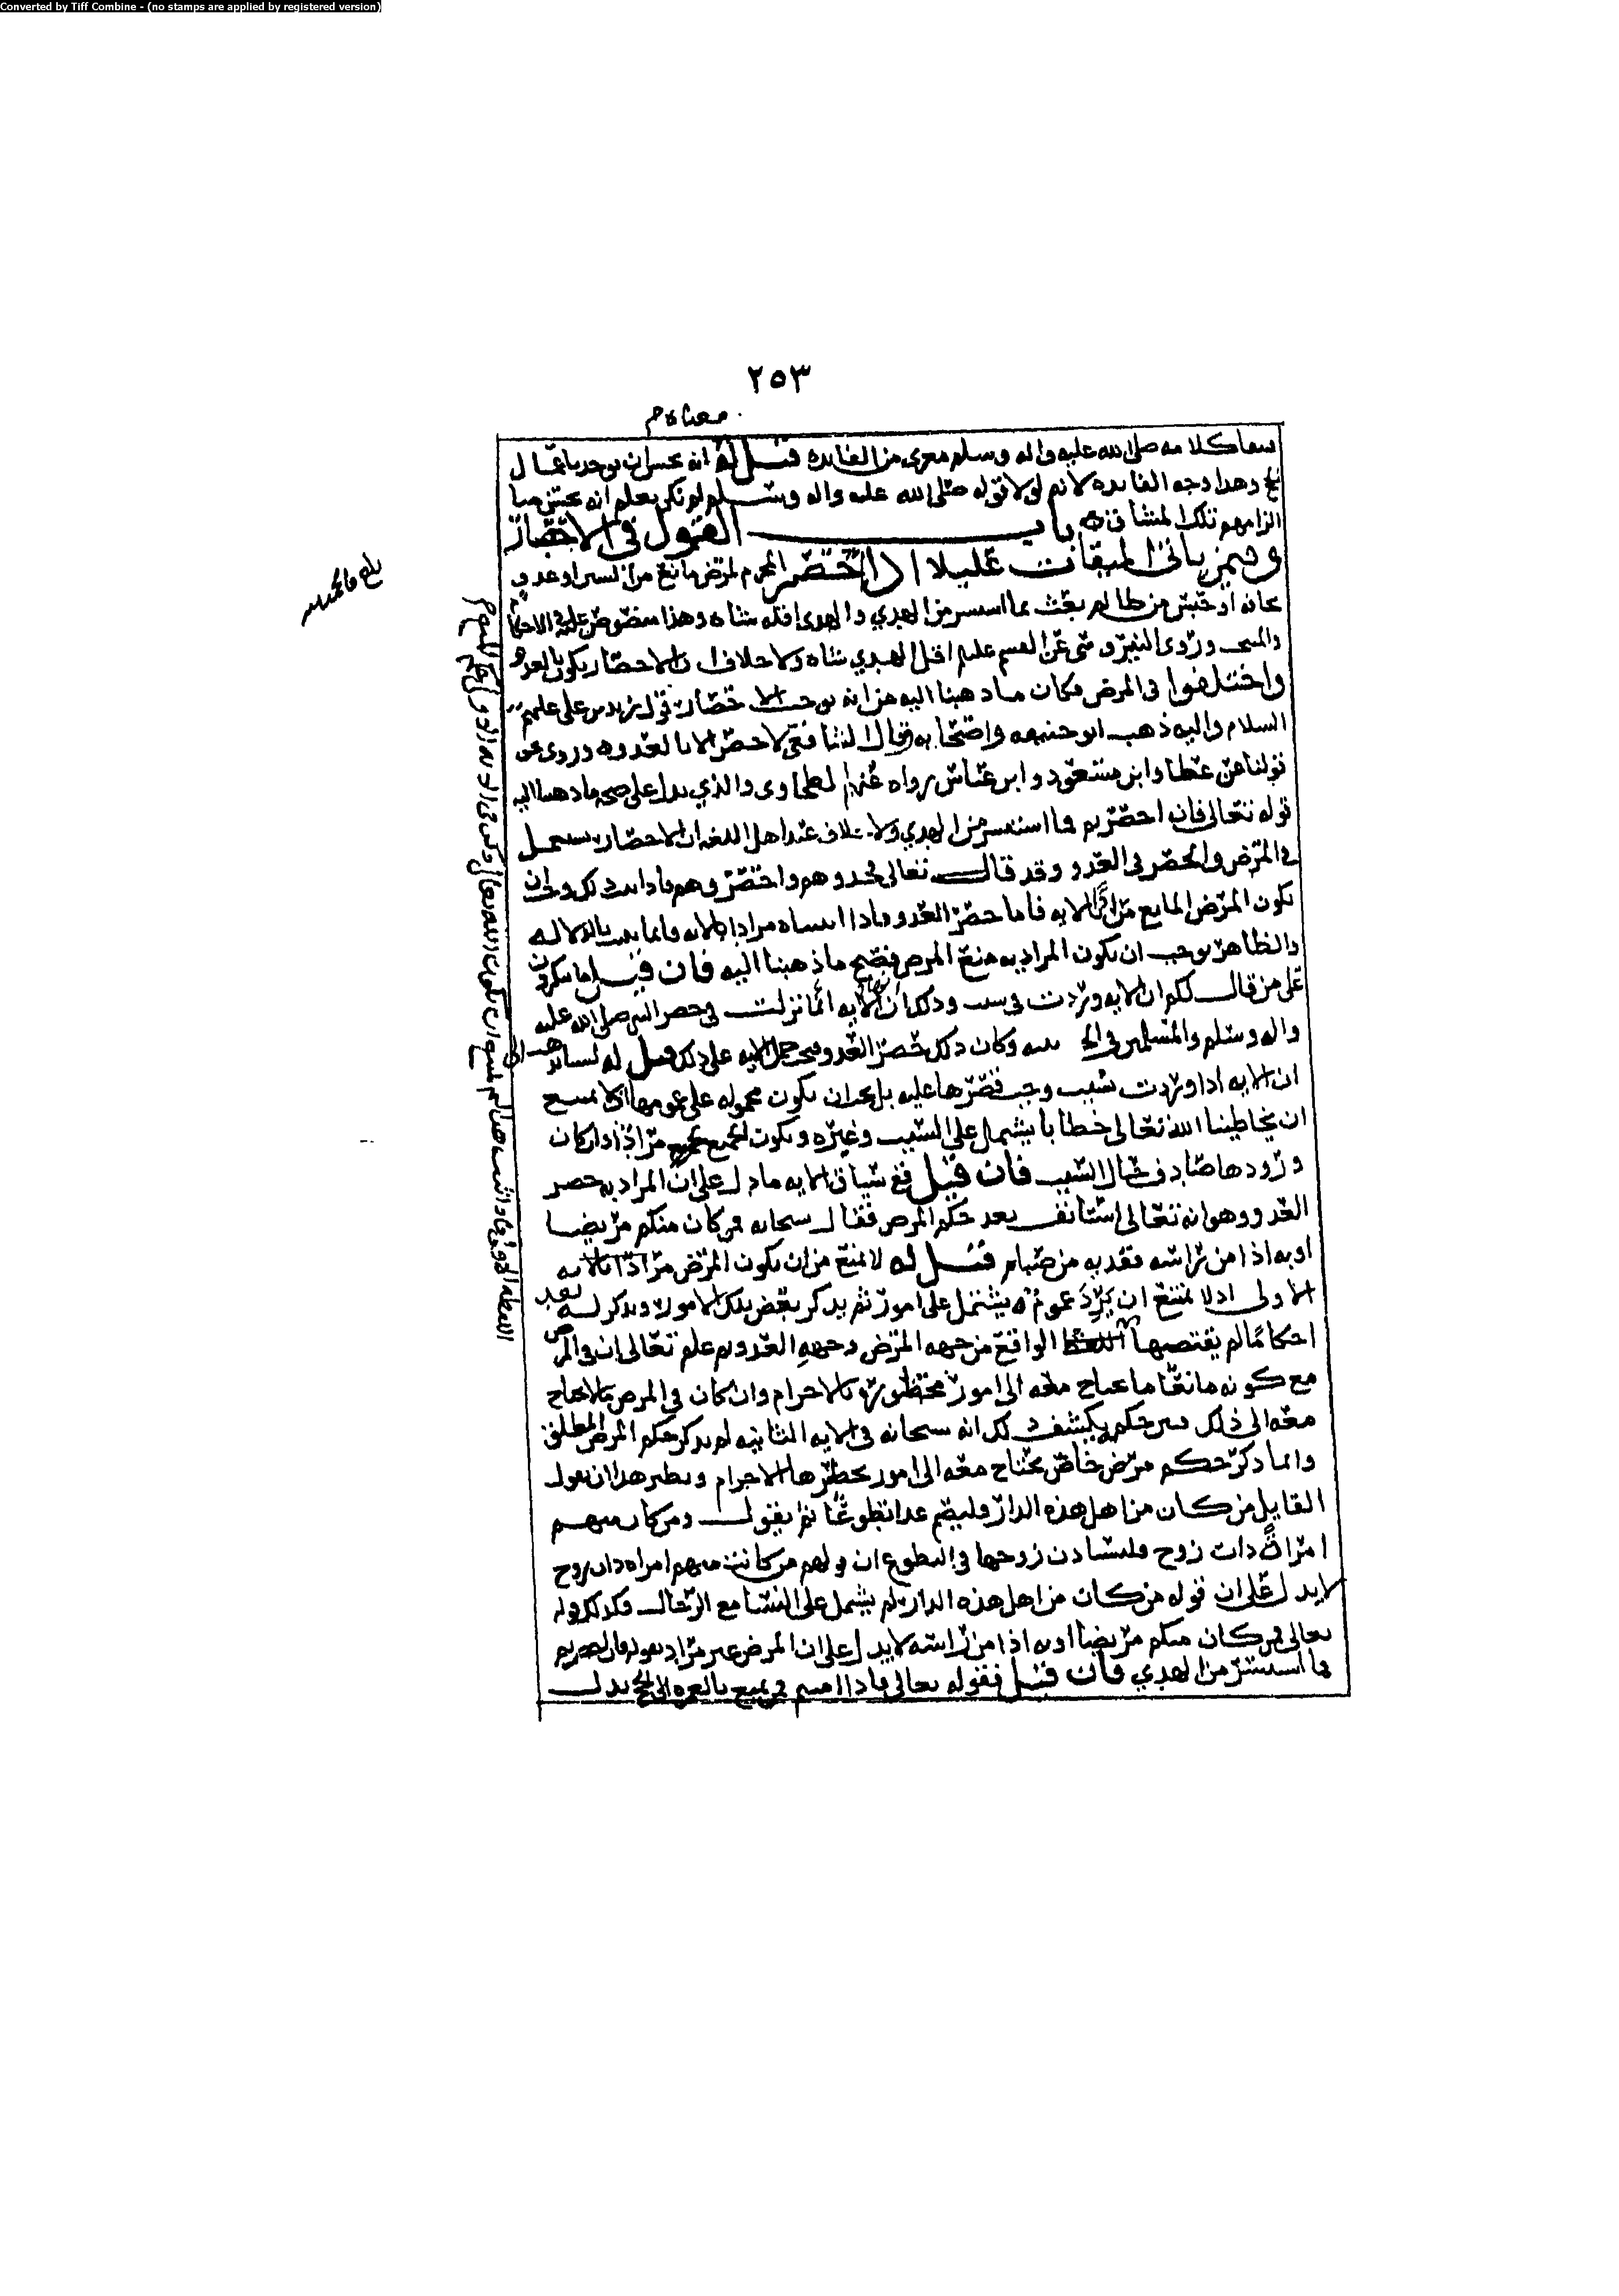 Converted by Tiff Combine - (no stamps are applied by registered version)
٢٥٣
معناه م
كلامه صلى الله عليه واله وسلم معرى من الفايده قيل له انه يحسن ان يوجد باعمال
وهذا وجه الفايده لانه لولا قوله صلى الله عليه واله وسلم لم نكن نعلم انه
الزامهم ذلك المشافى باب القول في الاحصار
وفيمن ياتى الميقات عليلا اذا احصر المحرم لمرض مانع من السير او عدو
خافه او حبس من ظالم بعث بما استيسر من الهدي والهدى اقله شاه وهذا منصوص عليه في الاحكام
والمنتخب وروى النيروسى عن القسم عليلم اقل الهدي شاه ولا خلاف ان الاحصار يكون بالعدو
واختلفوا في المرض فكان ما ذهبنا اليه من انه يوجب الاحصار قول زيد بن على عليهم
السلام واليه ذهب ابو حنيفه واصحابه وقال الشافعى لا حصر الا بالعدو وروى نحو
قولنا عن عطا وابن مسعود وابن عباس رواه عنهم الطحاوى والذي يدل على صحه ما ذهبنا اليه
قوله تعالى فان احصرتم فما استيسر من الهدي ولا خلاف عند اهل اللغه ان الاحصار يستعمل
في المرض والحصر في العدو وقد قال تعالى فخذوهم واحصروهم فاذا ثبت ذلك وجب ان
يكون المرض المانع مراد الايه فاما حصر العدو فاذا اثبتناه مرادا بالايه فانما يثبت بالدلاله
والظاهر يوجب ان يكون المراد به منع المرض فصح ما ذهبنا اليه فان قيل ما تنكرون
على من قال لكم ان الايه وردت في سبب وذلك ان الايه انما نزلت في حصر النبى صلى الله عليه
واله وسلم والمسلمين في الحديبيه وكان ذلك حصر العدو فيجب حمل الايه على ذلك قيل له لسنا نرى
ان الايه اذا وردت بسبب وجب قصرها عليه بل يجب ان يكون محموله على عمومها اذ لا يمتنع
ان يخاطبنا الله تعالى خطابا يشتمل على السبب وغيره ويكون الجميع مرادا وان كان
ورودها صادف حال السبب فان قيل ففى سياق الايه ما دل على ان المراد به حصر
العدو وهو انه تعالى استانف بعد حكم المرض فقال سبحانه فمن كان منكم مريضا
او به اذا من راسه ففديه من صيام قيل له لا يمنع من ان يكون المرض مرادا بالايه
الاولى اذ لا يمتنع ان يرد عموم يشتمل على امور ثم يذكر بعض تلك الامور ويذكر له بعد
احكاما لم يقتضها الواقع من جهه المرض وجهه العدو ثم علم تعالى ان في المرض
مع كونه مانعا ما يحتاج معه الى امور محظوره بالاحرام وان كان في المرض ما لا يحتاج
معه الى ذلك يكشف ذلك انه سبحانه في الايه الثانيه لم يذكر حكم المرض المطلق
وانما ذكر حكم مرض خاص يحتاج معه الى امور يحظرها الاحرام ونظير هذا ان يقول
القايل من كان من اهل هذه الدار فليصم غدا تطوعا ثم يقول ومن كان منهم
امراة ذات زوج فلتستاذن زوجها في التطوع ان قولهم من كانت منهم امراه ذات زوج
لا يدل على ان قوله من كان من اهل هذه الدار لم يشتمل على النسا مع الرجال فكذلك قوله
تعالى فمن كان منكم مريضا او به اذا من راسه لا يدل على ان المرض غير مراد بقوله فان احصرتم
فما استيسر من الهدي فان قيل فقوله تعالى فاذا امنتم فمن تمتع بالعمره الى الحج يدل